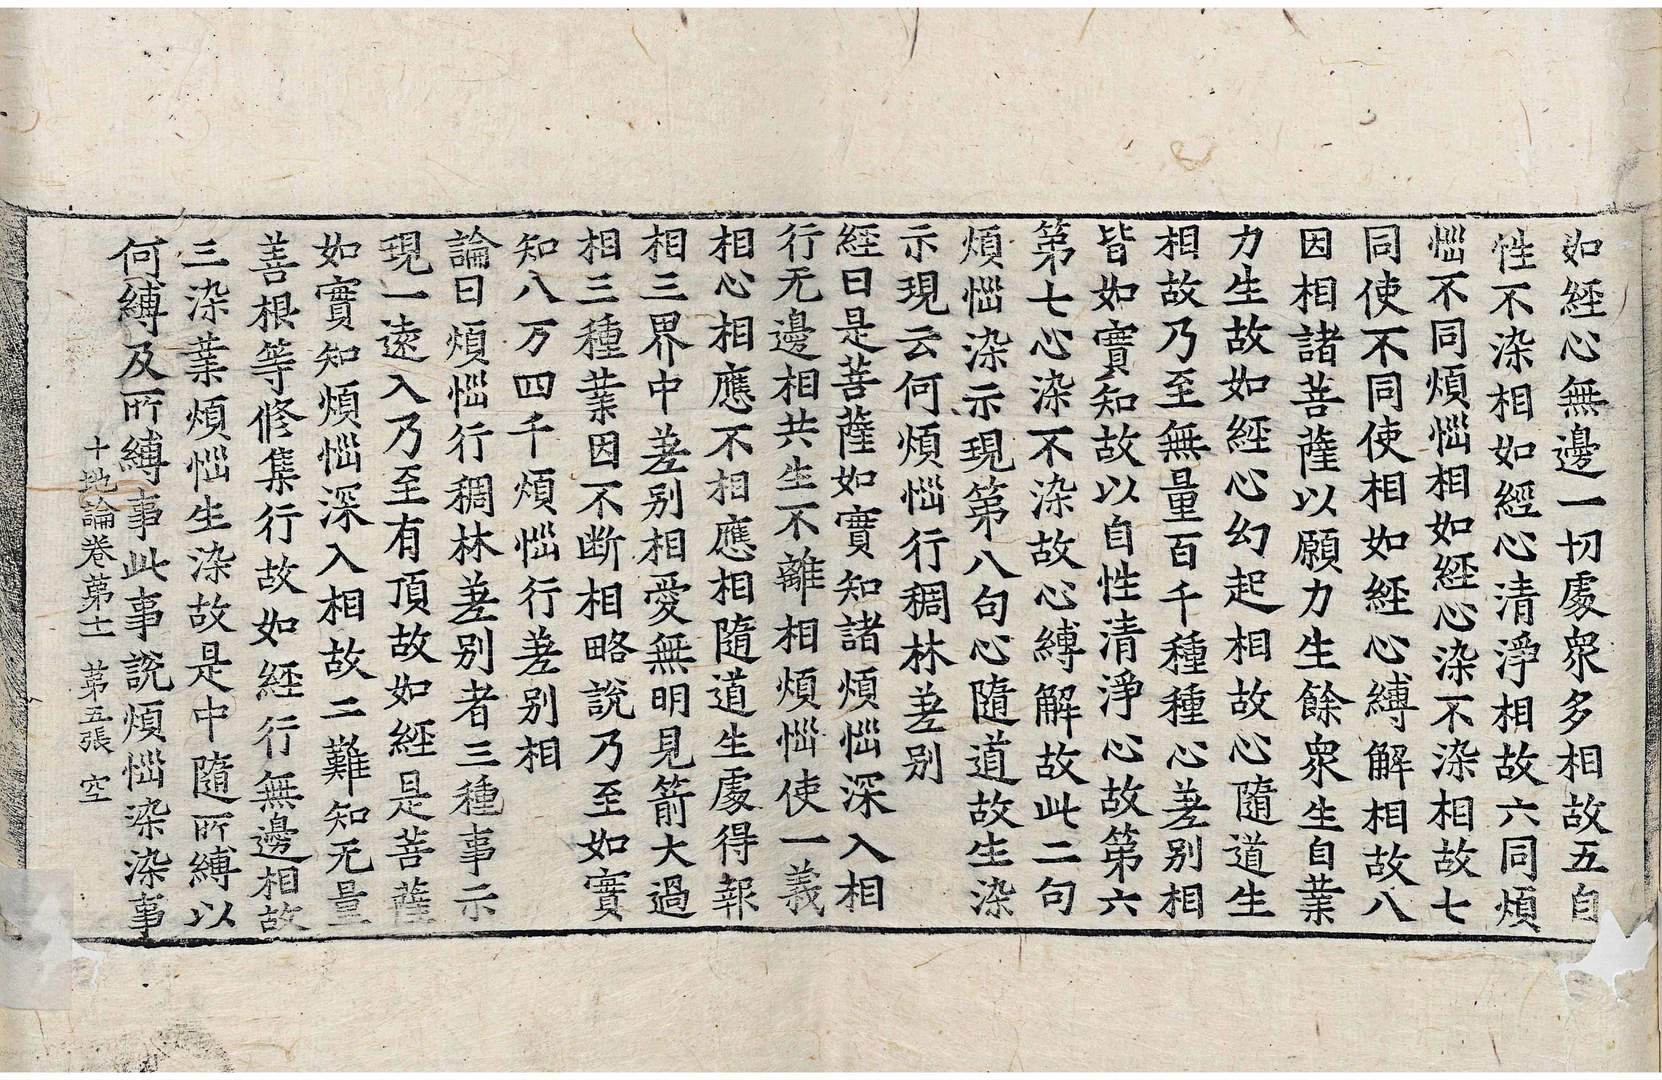 如經心無邊一切處衆多相故五自
性不染相如經心清淨相故六同煩
惱不同煩惱相如經心染不染相故七
同使不同使相如經心縛解相故八
因相諸菩薩以願力生餘衆生自業
力生故如經心幻起相故心隨道生
相故乃至無量百千種種心差别相
皆如實知故以自性清淨心故第六
第七心染不染故心縛解故此二句
煩惱染示現第八句心隨道故生染
示現云何煩惱行稠林差别
經曰是菩薩如實知諸煩惱深入相
行无邊相共生不離相煩惱使一義
相心相應不相應相隨道生處得報
相三界中差别相愛無明見箭大過
相三種業因不断相略說乃至如實
知八万四千煩惱行差别相
論曰煩惱行稠林差别者三種事示
現一遠入乃至有頂故如經是菩薩
如實知煩惱深入相故二難知无量
善根等修集行故如經行無邊相故
三染業煩惱生染故是中隨所縛以
何縛及所縛事此事說煩惱染染事
十地論卷第十一 第五張 空